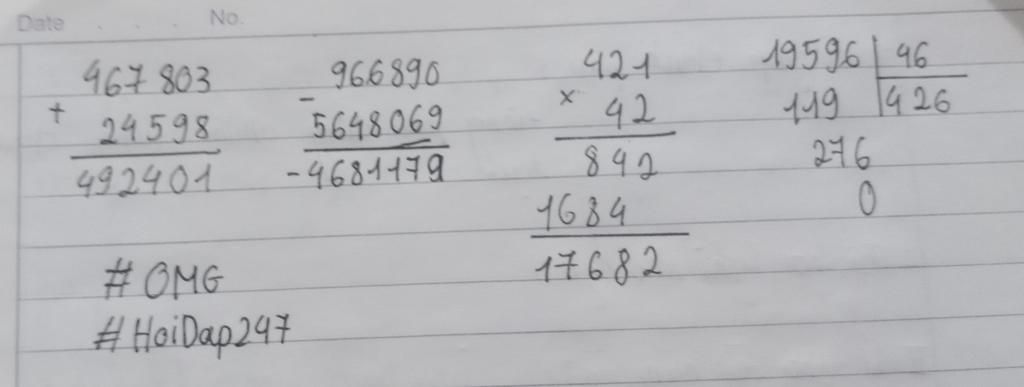 Date . . . No.
467 803
+
24598
492401
966890
-
5648069
-4681179
421
x
42
842
1684
17682
19596 46
119 426
276
0
#OMG
#HoiDap247